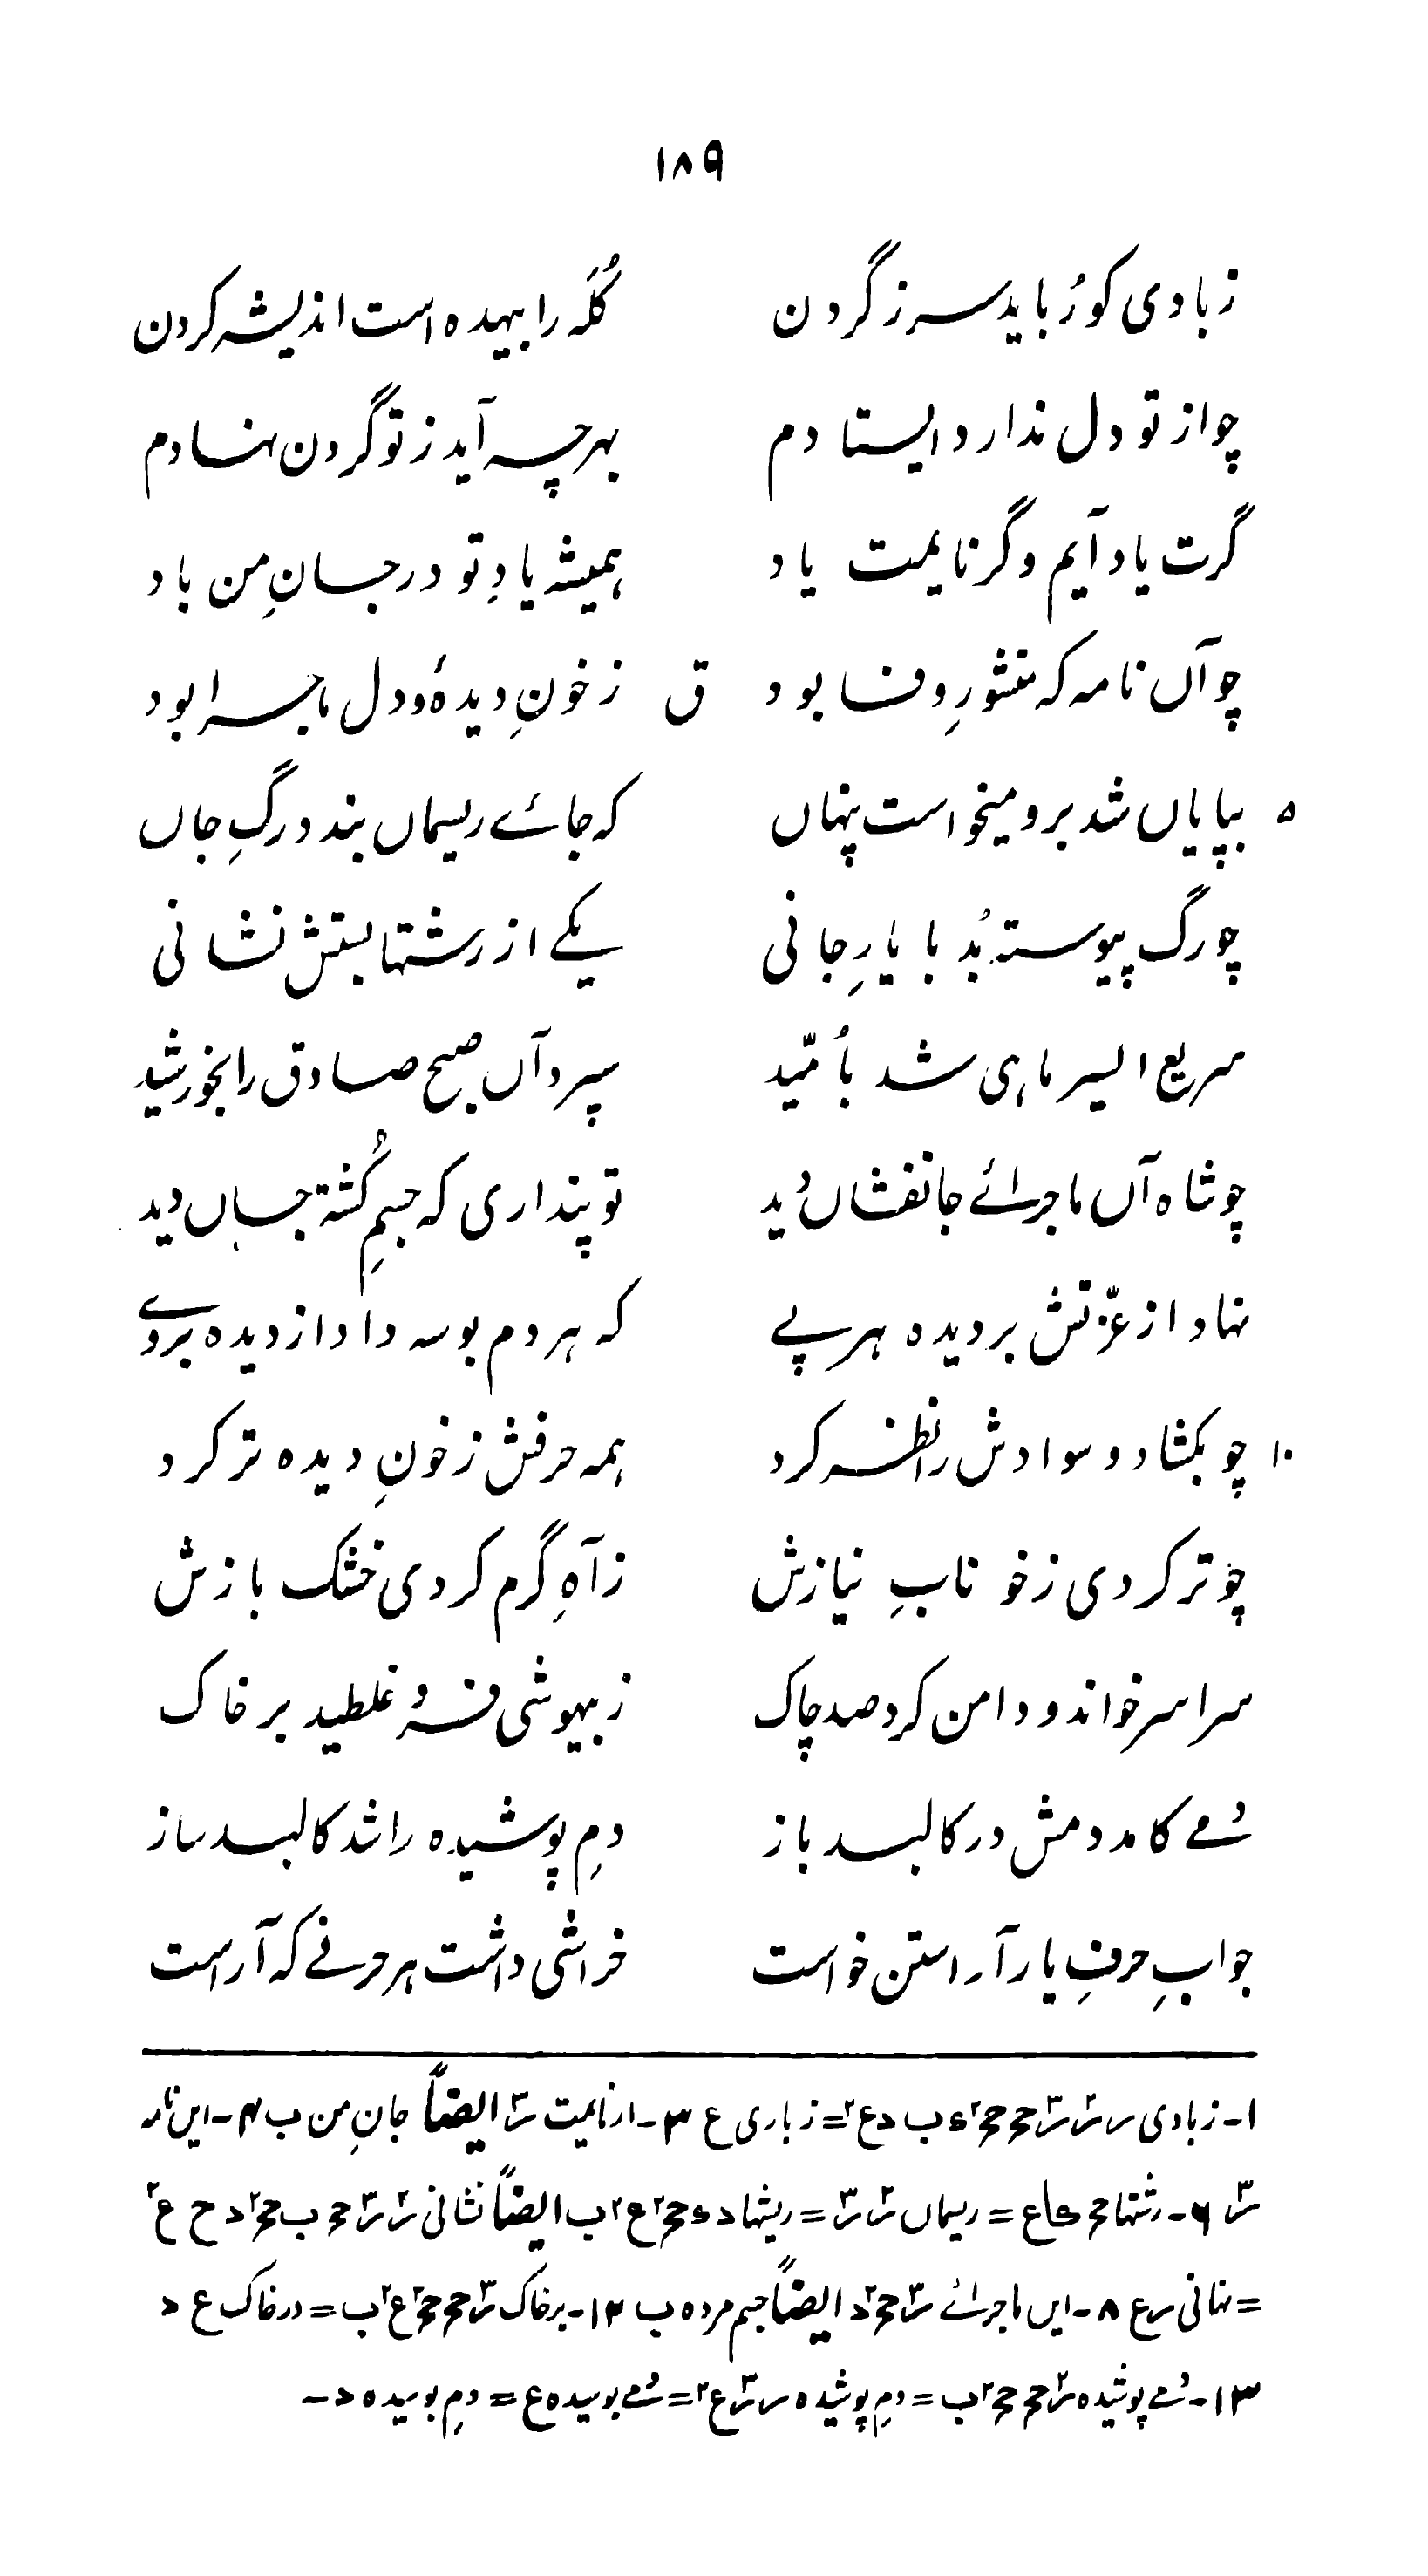 ۱۸۹
زبادی کو رُباید سر ز گردن کُلَہ را بیہدہ است اندیشہ کردن
چو از تو دل ندارد ایستادم بہرچہ آید ز تو گردن نہادم
گرت یاد آیم و گر نایمت یاد ہمیشہ یادِ تو در جانِ من باد
چو آں نامہ کہ منشورِ وفا بود ق ز خونِ دیدہٴ و دل ماجرا بود
۵ بپایاں شد برو میخواست پنہاں کہ جائے ریسماں بندد رگِ جاں
چو رگ پیوستہ بُد با یارِ جانی یکے از رشتہا بستش نشانی
سریع السیر ماہی شد باُمّید سپرد آں صبح صادق را بخورشید
چو شاہ آں ماجرائے جانفشاں دید تو پنداری کہ جسمِ کُشتہ جاں دید
نہاد از عزّتش بر دیدہ ہر پے کہ ہر دم بوسہ دادا ز دیدہ بروے
۱۰ چو بکشاد و سوادش را نظر کرد ہمہ حرفش ز خونِ دیدہ تر کرد
چو تر کردی ز خونابِ نیازش ز آہِ گرم کردی خشک بازش
سراسر خواند و دامن کرد صد چاک ز بیہوشی فرو غلطید بر خاک
دمے کامد دمش در کالبد باز دمِ پوشیدہ را شد کالبد ساز
جوابِ حرفِ یار آراستن خواست خراشی داشت ہر حرفے کہ آراست
۱- زبادی = زباری ع ۳- ار نایمت ایضاً جانِ من ب ۴- این نامہ
۶- رشتہا = ریسماں = ریشہا ایضاً نشانی
= نہانی س ع ۸- ایں ماجرائے ایضاً جسم مردہ ب ۱۲- بر خاک = در خاک ع د
۱۳- دمے پوشیدہ = دمِ پوشیدہ = دمے بوسیدہ ع = دمِ بوسیدہ د -